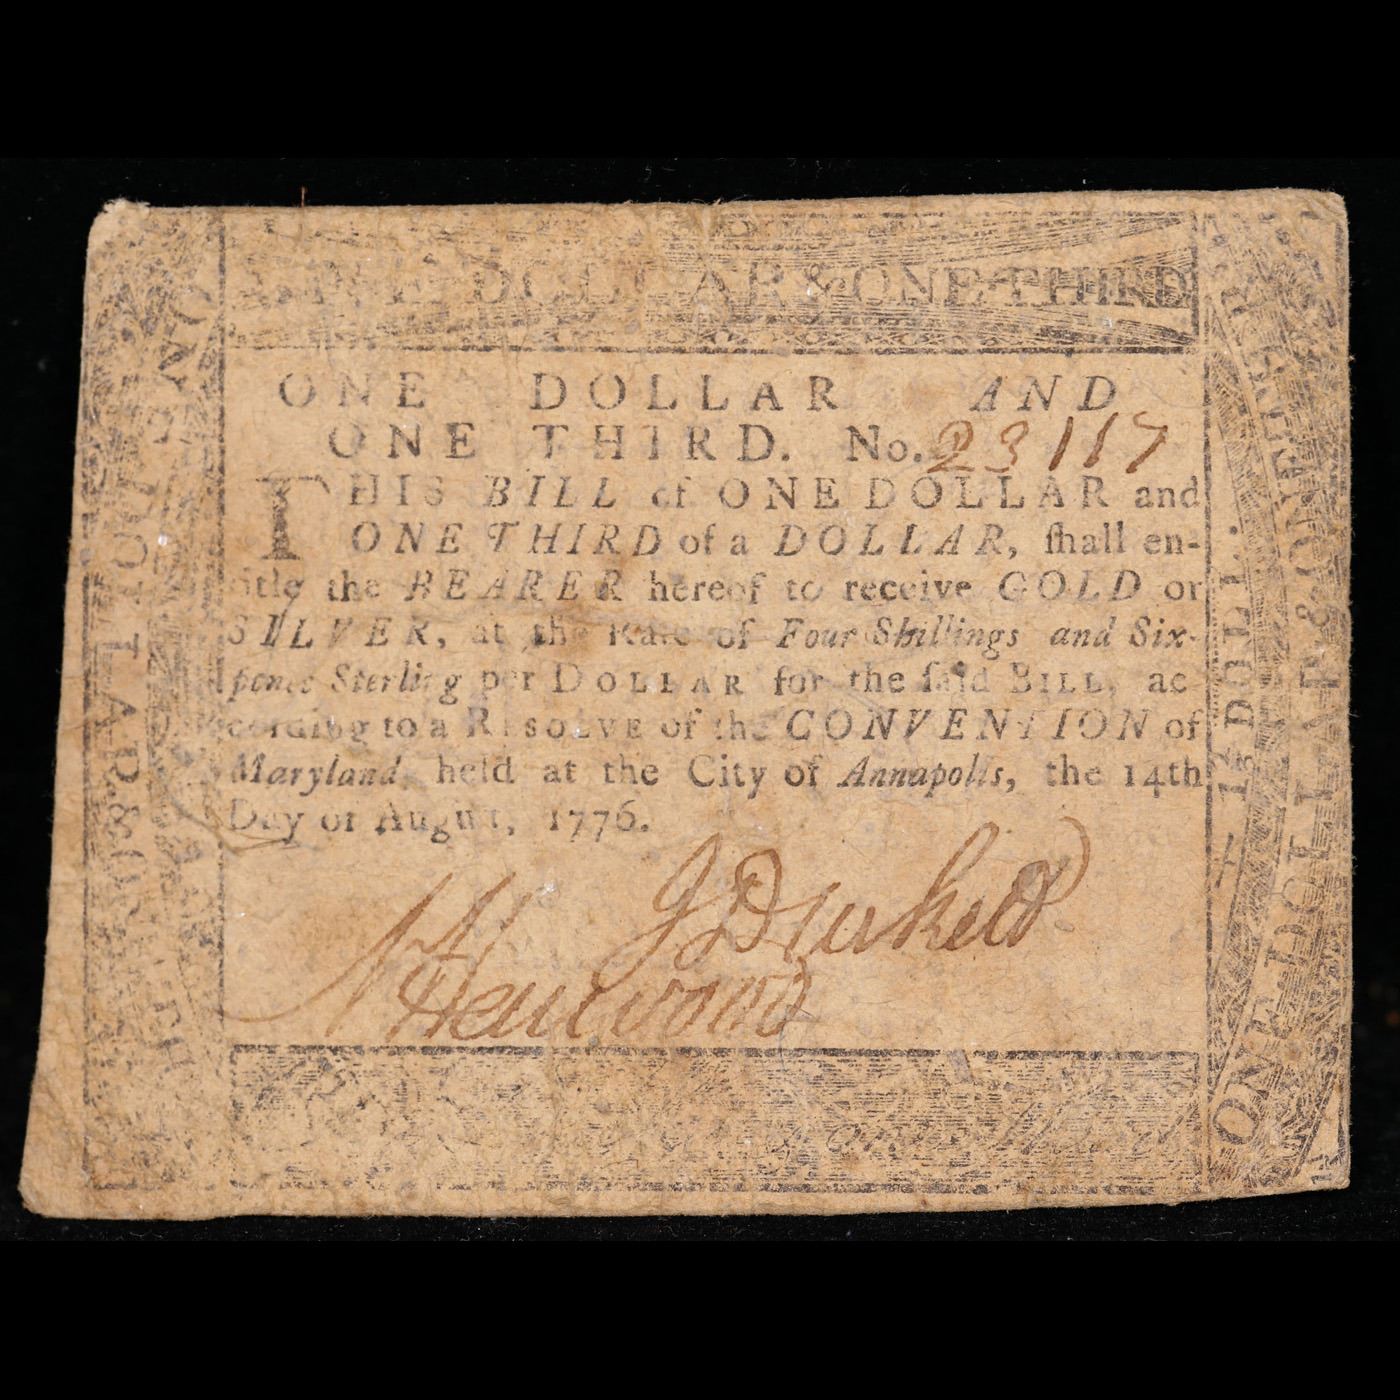 ONE DOLLAR & ONE THIRD
ONE DOLLAR AND
ONE THIRD. No. 23117
THIS BILL of ONE DOLLAR and
ONE THIRD of a DOLLAR, ſhall en-
title the BEARER hereof to receive GOLD or
SILVER, at the Rate of Four Shillings and Six-
pence Sterling per DOLLAR for the ſaid BILL, ac
cording to a RESOLVE of the CONVENTION of
Maryland held at the City of Annapolis, the 14th
Day of Auguſt, 1776.
1⅓ DOLL.
ONE DOLLAR & ONE THIRD